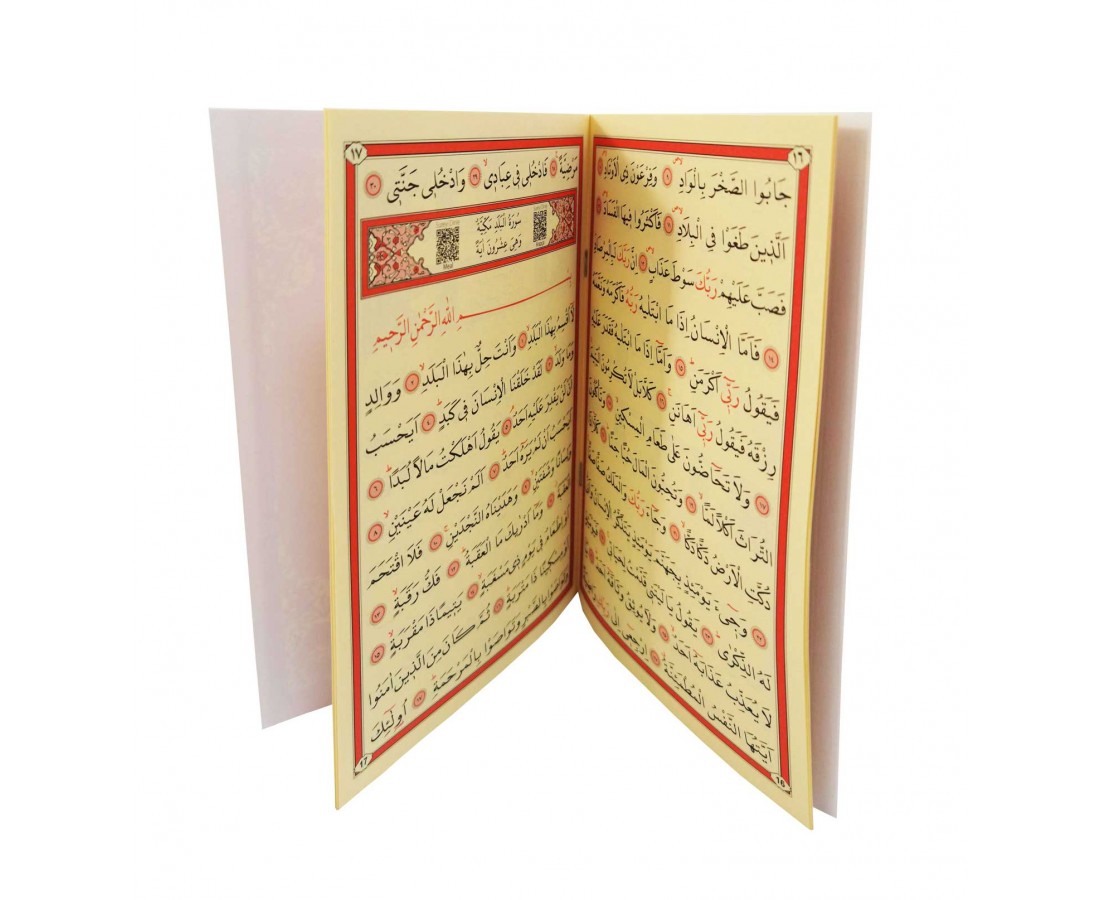 ١٦
جَابُوا الصَّخْرَ بِالْوَادِۙ ﴿٩﴾ وَفِرْعَوْنَ ذِى الْاَوْتَادِۙ ﴿١٠﴾
اَلَّذ۪ينَ طَغَوْا فِى الْبِلَادِۙ ﴿١١﴾ فَاَكْثَرُوا ف۪يهَا الْفَسَادَۙ ﴿١٢﴾
فَصَبَّ عَلَيْهِمْ رَبُّكَ سَوْطَ عَذَابٍۚ ﴿١٣﴾ اِنَّ رَبَّكَ لَبِالْمِرْصَادِۜ
﴿١٤﴾ فَاَمَّا الْاِنْسَانُ اِذَا مَا ابْتَلٰيهُ رَبُّهُ فَاَكْرَمَهُ وَنَعَّمَهُ
فَيَقُولُ رَبّ۪ٓى اَكْرَمَنِۜ ﴿١٥﴾ وَاَمَّٓا اِذَا مَا ابْتَلٰيهُ فَقَدَرَ عَلَيْهِ
رِزْقَهُ فَيَقُولُ رَبّ۪ٓى اَهَانَنِۚ ﴿١٦﴾ كَلَّا بَلْ لَا تُكْرِمُونَ الْيَت۪يمَۙ
﴿١٧﴾ وَلَا تَحَٓاضُّونَ عَلٰى طَعَامِ الْمِسْك۪ينِۙ ﴿١٨﴾ وَتَأْكُلُونَ
التُّرَاثَ اَكْلًا لَمًّاۙ ﴿١٩﴾ وَتُحِبُّونَ الْمَالَ حُبًّا جَمًّاۜ ﴿٢٠﴾ كَلَّٓا اِذَا
دُكَّتِ الْاَرْضُ دَكًّا دَكًّاۙ ﴿٢١﴾ وَجَٓاءَ رَبُّكَ وَالْمَلَكُ صَفًّا صَفًّاۚ
﴿٢٢﴾ وَج۪ٓىءَ يَوْمَئِذٍ بِجَهَنَّمَ يَوْمَئِذٍ يَتَذَكَّرُ الْاِنْسَانُ وَاَنّٰى
لَهُ الذِّكْرٰىۜ ﴿٢٣﴾ يَقُولُ يَا لَيْتَن۪ى قَدَّمْتُ لِحَيَات۪ىۚ ﴿٢٤﴾ فَيَوْمَئِذٍ
لَا يُعَذِّبُ عَذَابَهُٓ اَحَدٌۙ ﴿٢٥﴾ وَلَا يُوثِقُ وَثَاقَهُٓ اَحَدٌۜ
اَيَّتُهَا النَّفْسُ الْمُطْمَئِنَّةُۗ ﴿٢٧﴾ اِرْجِع۪ٓى اِلٰى رَبِّكِ
16
١٧
مَرْضِيَّةًۚ ﴿٢٨﴾ فَادْخُل۪ى ف۪ى عِبَاد۪ىۙ ﴿٢٩﴾ وَادْخُل۪ى جَنَّت۪ى ﴿٣٠﴾
سُورَةُ الْبَلَدِ مَكِّيَّةٌ
وَهِىَ عِشْرُونَ اٰيَةً
بِسْمِ اللّٰهِ الرَّحْمٰنِ الرَّح۪يمِ
لَٓا اُقْسِمُ بِهٰذَا الْبَلَدِۙ ﴿١﴾ وَاَنْتَ حِلٌّ بِهٰذَا الْبَلَدِۙ ﴿٢﴾ وَوَالِدٍ
وَمَا وَلَدَۙ ﴿٣﴾ لَقَدْ خَلَقْنَا الْاِنْسَانَ ف۪ى كَبَدٍۜ ﴿٤﴾ اَيَحْسَبُ
اَنْ لَنْ يَقْدِرَ عَلَيْهِ اَحَدٌۢ ﴿٥﴾ يَقُولُ اَهْلَكْتُ مَالًا لُبَدًاۜ ﴿٦﴾
اَيَحْسَبُ اَنْ لَمْ يَرَهُٓ اَحَدٌۜ ﴿٧﴾ اَلَمْ نَجْعَلْ لَهُ عَيْنَيْنِۙ ﴿٨﴾
وَلِسَانًا وَشَفَتَيْنِۙ ﴿٩﴾ وَهَدَيْنَاهُ النَّجْدَيْنِۚ ﴿١٠﴾ فَلَا اقْتَحَمَ
الْعَقَبَةَۘ ﴿١١﴾ وَمَٓا اَدْرٰيكَ مَا الْعَقَبَةُۜ ﴿١٢﴾ فَكُّ رَقَبَةٍۙ ﴿١٣﴾
اَوْ اِطْعَامٌ ف۪ى يَوْمٍ ذ۪ى مَسْغَبَةٍۙ ﴿١٤﴾ يَت۪يمًا ذَا مَقْرَبَةٍۙ ﴿١٥﴾
اَوْ مِسْك۪ينًا ذَا مَتْرَبَةٍۜ ﴿١٦﴾ ثُمَّ كَانَ مِنَ الَّذ۪ينَ اٰمَنُوا
وَتَوَاصَوْا بِالصَّبْرِ وَتَوَاصَوْا بِالْمَرْحَمَةِۜ ﴿١٧﴾ اُو۬لٰٓئِكَ
17